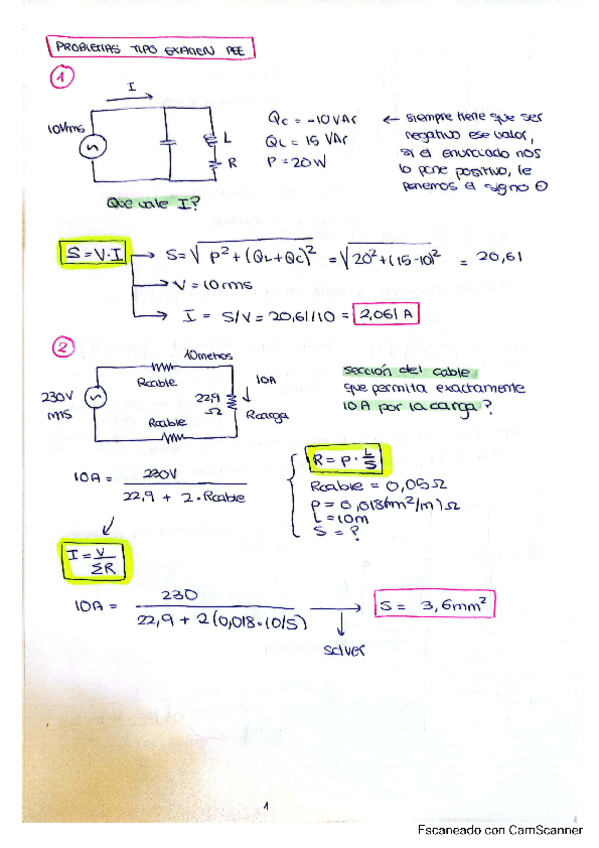 PROBLEMAS TIPO EXAMEN PEE
1
I
10Vrms
L
R
Qc = -10 VAr
QL = 15 VAr
P = 20W
← siempre tiene que ser
negativo ese valor,
si el enunciado nos
lo pone positivo, le
ponemos el signo ⊖
Que vale I?
S = V·I
S = √P² + (QL+Qc)² = √20² + (15-10)² = 20,61
V = 10 rms
I = S/V = 20,61/10 = 2,061 A
2
10metros
Rcable
230V
rms
22,9
Ω
10A
Rcarga
Rcable
sección del cable
que permita exactamente
10 A por la carga?
10A = 230V / 22,9 + 2·Rcable
R = ρ · L/S
Rcable = 0,05Ω
ρ = 0,018(m²/m)Ω
L = 10m
S = ?
I = V/ΣR
10A = 230 / 22,9 + 2(0,018·10/S)
S = 3,6mm²
solver
1
Escaneado con CamScanner